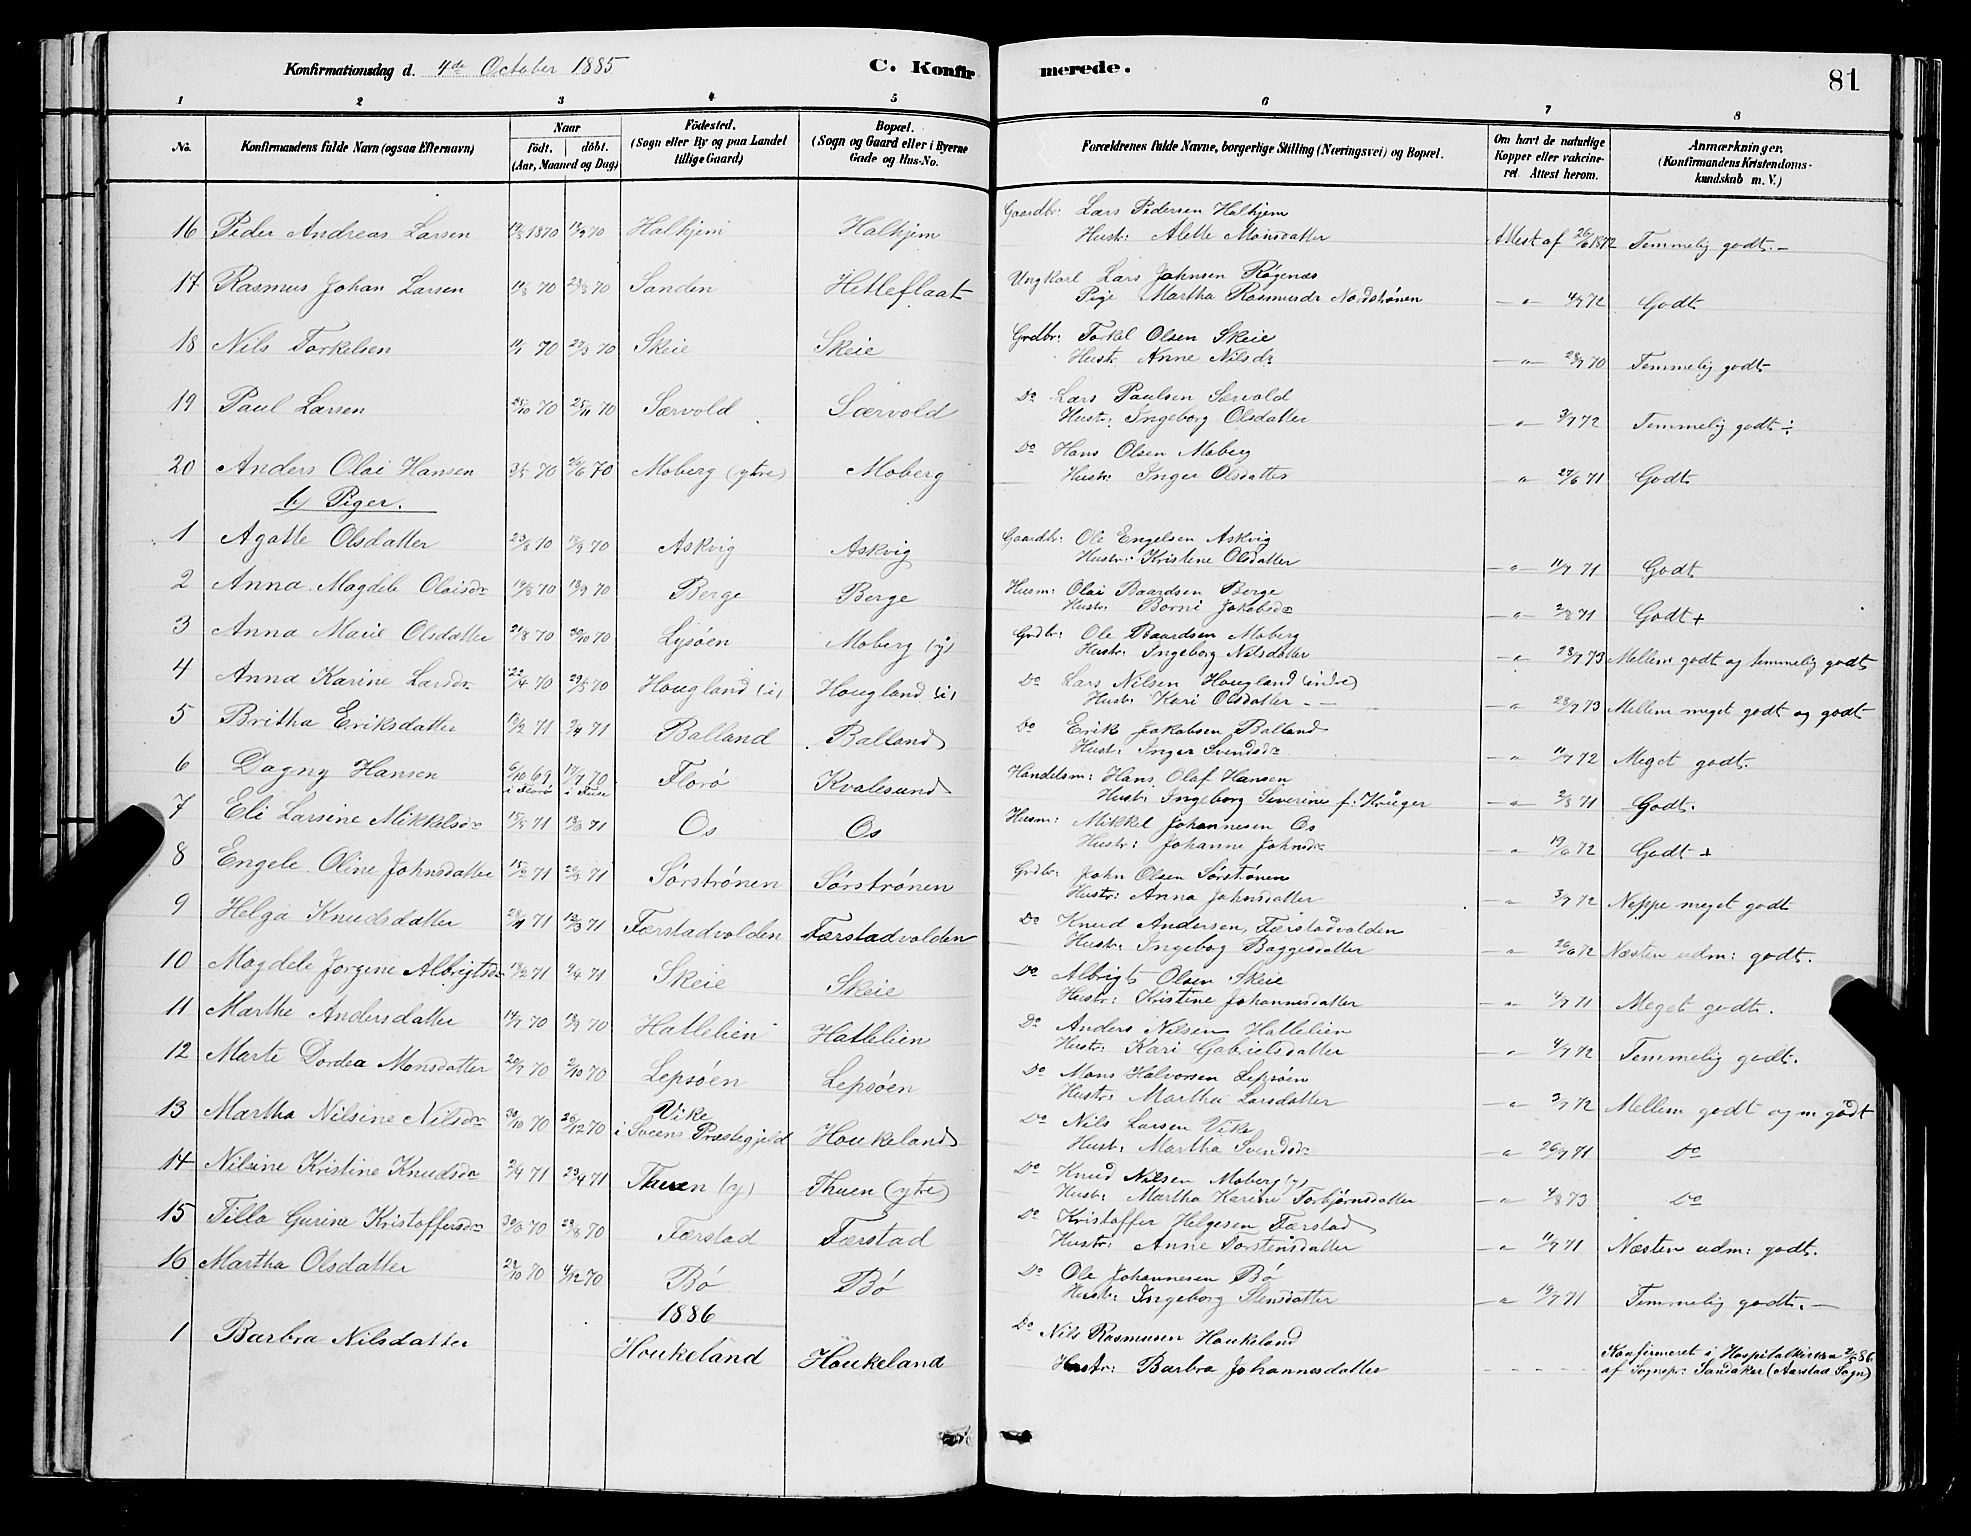 Konfirmationsdag d. 4de October 1885
C. Konfirmerede.
81
1 2 3 4 5 6 7 8
No.
Konfirmandens fulde Navn (ogsaa Efternavn)
Naar
födt. döbt.
(Aar, Maaned og Dag)
Födested.
(Sogn eller By og paa Landet
tillige Gaard)
Bopæl.
(Sogn og Gaard eller i Byerne
Gade og Hus-No.
Forældrenes fulde Navne, borgerlige Stilling (Næringsvei) og Bopæl.
Om havt de naturlige
Kopper eller vakcine-
ret Attest herom.
Anmærkninger.
(Konfirmandens Kristendoms-
kundskab m. V.)
16 Peder Andreas Larsen 1870 70 Halhjem Halhjem Gaardbr: Lars Pedersen Halhjem
Hustr: Alette Monsdatter Attest af 26/6 1872 Temmelig godt. -
17 Rasmus Johan Larsen 11/8 70 29/8 70 Sanden Hetleflaat Ungkarl Lars Johnsen Røgenæs
Pige Martha Rasmusdr Nordstrønen -"- 4/7 72 Godt
18 Nils Torkelsen 70 27/3 70 Skeie Skeie Grdbr: Torkel Olsen Skeie
Hustr. Anne Nilsdr -"- 28/7 70 Temmelig godt
19 Paul Larsen 25/10 70 25/11 70 Særvold Særvold Do Lars Paulsen Særvold
Hustr: Ingeborg Olsdatter -"- 3/7 72 Temmelig godt ÷
20 Anders Olai Hansen 70 26/6 70 Moberg (ytre) Moberg Do Hans Olsen Moberg
Hustr: Inger Olsdatter -"- 27/6 71 Godt
b) Piger.
1 Agatte Olsdatter 23/8 70 18/9 70 Askvig Askvig Gaardbr: Ole Engelsen Askvig
Hustr: Kristene Olsdatter -"- 11/7 71 Godt
2 Anna Magdele Olaisdr 19/8 70 18/9 70 Berge Berge Husm: Olai Baardsen Berge
Hustr: Borni Jakobsdr -"- 2/8 71 Godt +
3 Anna Marie Olsdatter 21/8 70 30/10 70 Lysøen Moberg (y) Grdbr: Ole Baardsen Moberg
Hustr: Ingeborg Nilsdatter -"- 28/7 73 Mellem godt og temmelig godt
4 Anna Karine Larsdr 22/4 70 29/5 70 Hougland (i) Hougland (i) Do Lars Nilsen Hougland (indre)
Hustr: Kari Olsdatter - - -"- 28/7 73 Mellem meget godt og godt
5 Britha Eriksdatter 71 2/4 71 Balland Balland Do Erik Jakobsen Balland
Hustr: Inger Svendsdr -"- 11/7 72 Meget godt.
6 Dagny Hansen 6/10 69 17/7 70 Florø Kvalesund Handelsm: Hans Olaf Hansen
i Florø i Fuse
Hustr: Ingeborg Severine f: Krüger -"- 2/8 71 Godt.
7 Eli Larsine Mikkelsdr 71 71 Os Os Husm: Mikkel Johannesen Os
Hustr: Johanne Johnsdr -"- 19/6 72 Godt +
8 Engele Oline Johnsdatter 15/2 71 26/3 71 Sørstrønen Sørstrønen Grdbr: John Olsen Sørstrønen
Hustr: Anna Johnsdatter -"- 3/7 72 Neppe meget godt
9 Helga Knudsdatter 71 12/3 71 Færstadvolden Færstadvolden Do Knud Andersen, Færstadvolden
Hustr: Ingebog Baggesdatter -"- 26/6 72 Næsten udm: godt.
10 Magdele Jorgine Albrigtsdr 71 2/4 71 Skeie Skeie Do Albrigt Olsen Skeie
Hustr: Kristine Johannesdatter -"- 4/7 71 Meget godt.
11 Marthe Andersdatter 14/7 70 18/9 70 Hatlelien Hatlelien Do Anders Nilsen Hatlelien
Hustr: Kari Gabrielsdatter -"- 4/7 72 Temmelig godt.
12 Marte Dordea Monsdatter 20/7 70 2/10 70 Lepsøen Lepsøen Do Mons Halvorsen Lepsøen
Hustr: Martha Larsdatter -"- 3/7 72 Mellem godt og m godt
13 Martha Nilsine Nilsdr 30/10 70 26/12 70 Vike
i Sveens Præstegjeld Houkeland Do Nils Larsen Vike
Hustr: Martha Svendsdr -"- 26/7 71 Do
14 Nilsine Kristine Knudsdr 2/4 71 23/4 71 Thuen (y) Thuen (ytre) Do Knud Nilsen Moberg (y)
Hustr: Martha Karine Torbjørnsdatter -"- 4/8 73 Do
15 Tilla Gurine Kristoffersdr 70 70 Færstad Færstad Do Kristoffer Helgesen Færstad
Hustr: Anne Torstensdatter -"- 11/7 71 Næsten udm: godt.
16 Martha Olsdatter 70 4/12 70 Bø Bø Do Ole Johannesen Bø
Hustr: Ingeborg Stensdatter -"- 19/7 71 Temmelig godt. -
1886
1 Barbra Nilsdatter Houkeland Houkeland Do Nils Rasmusen Houkeland
Hustr: Barbra Johannesdatter - - - - Konfirmeret i Hospitalkirken 2/5 86
af Sognepr: Sandaker (Aarstad Sogn)